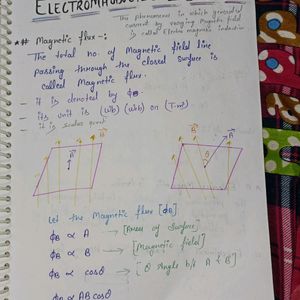 ELECTROMAGNETIC
The phenomenon in which generated
current by changing Magnetic field
is called Electro magnetic induction
*## Magnetic flux -:
The total no. of Magnetic field line
passing through the closed surface is
called Magnetic flux.
- it is denoted by ϕB
- its unit is (wb) (web) or (T-m²)
- it is scalar
B⃗
A⃗
B⃗
A⃗
θ
Let the Magnetic flux [ϕB]
ϕB ∝ A → [Area of Surface]
ϕB ∝ B → [Magnetic field]
ϕB ∝ cosθ → [θ angle b/w A & B]
ϕB ∝ AB cosθ